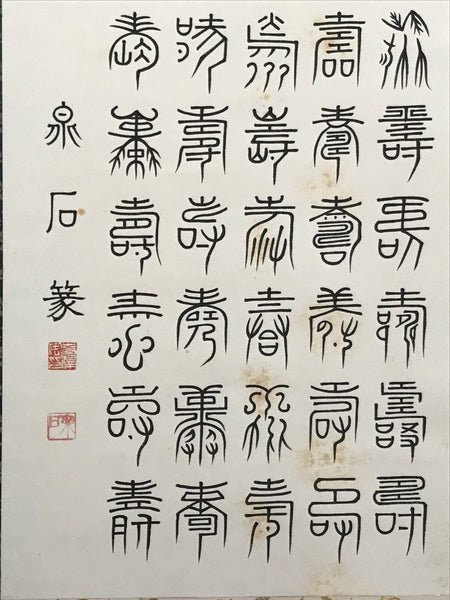 壽壽壽壽壽壽
壽壽壽壽壽壽
壽壽壽壽壽壽
壽壽壽壽壽壽
壽壽壽壽壽壽
泉石篆